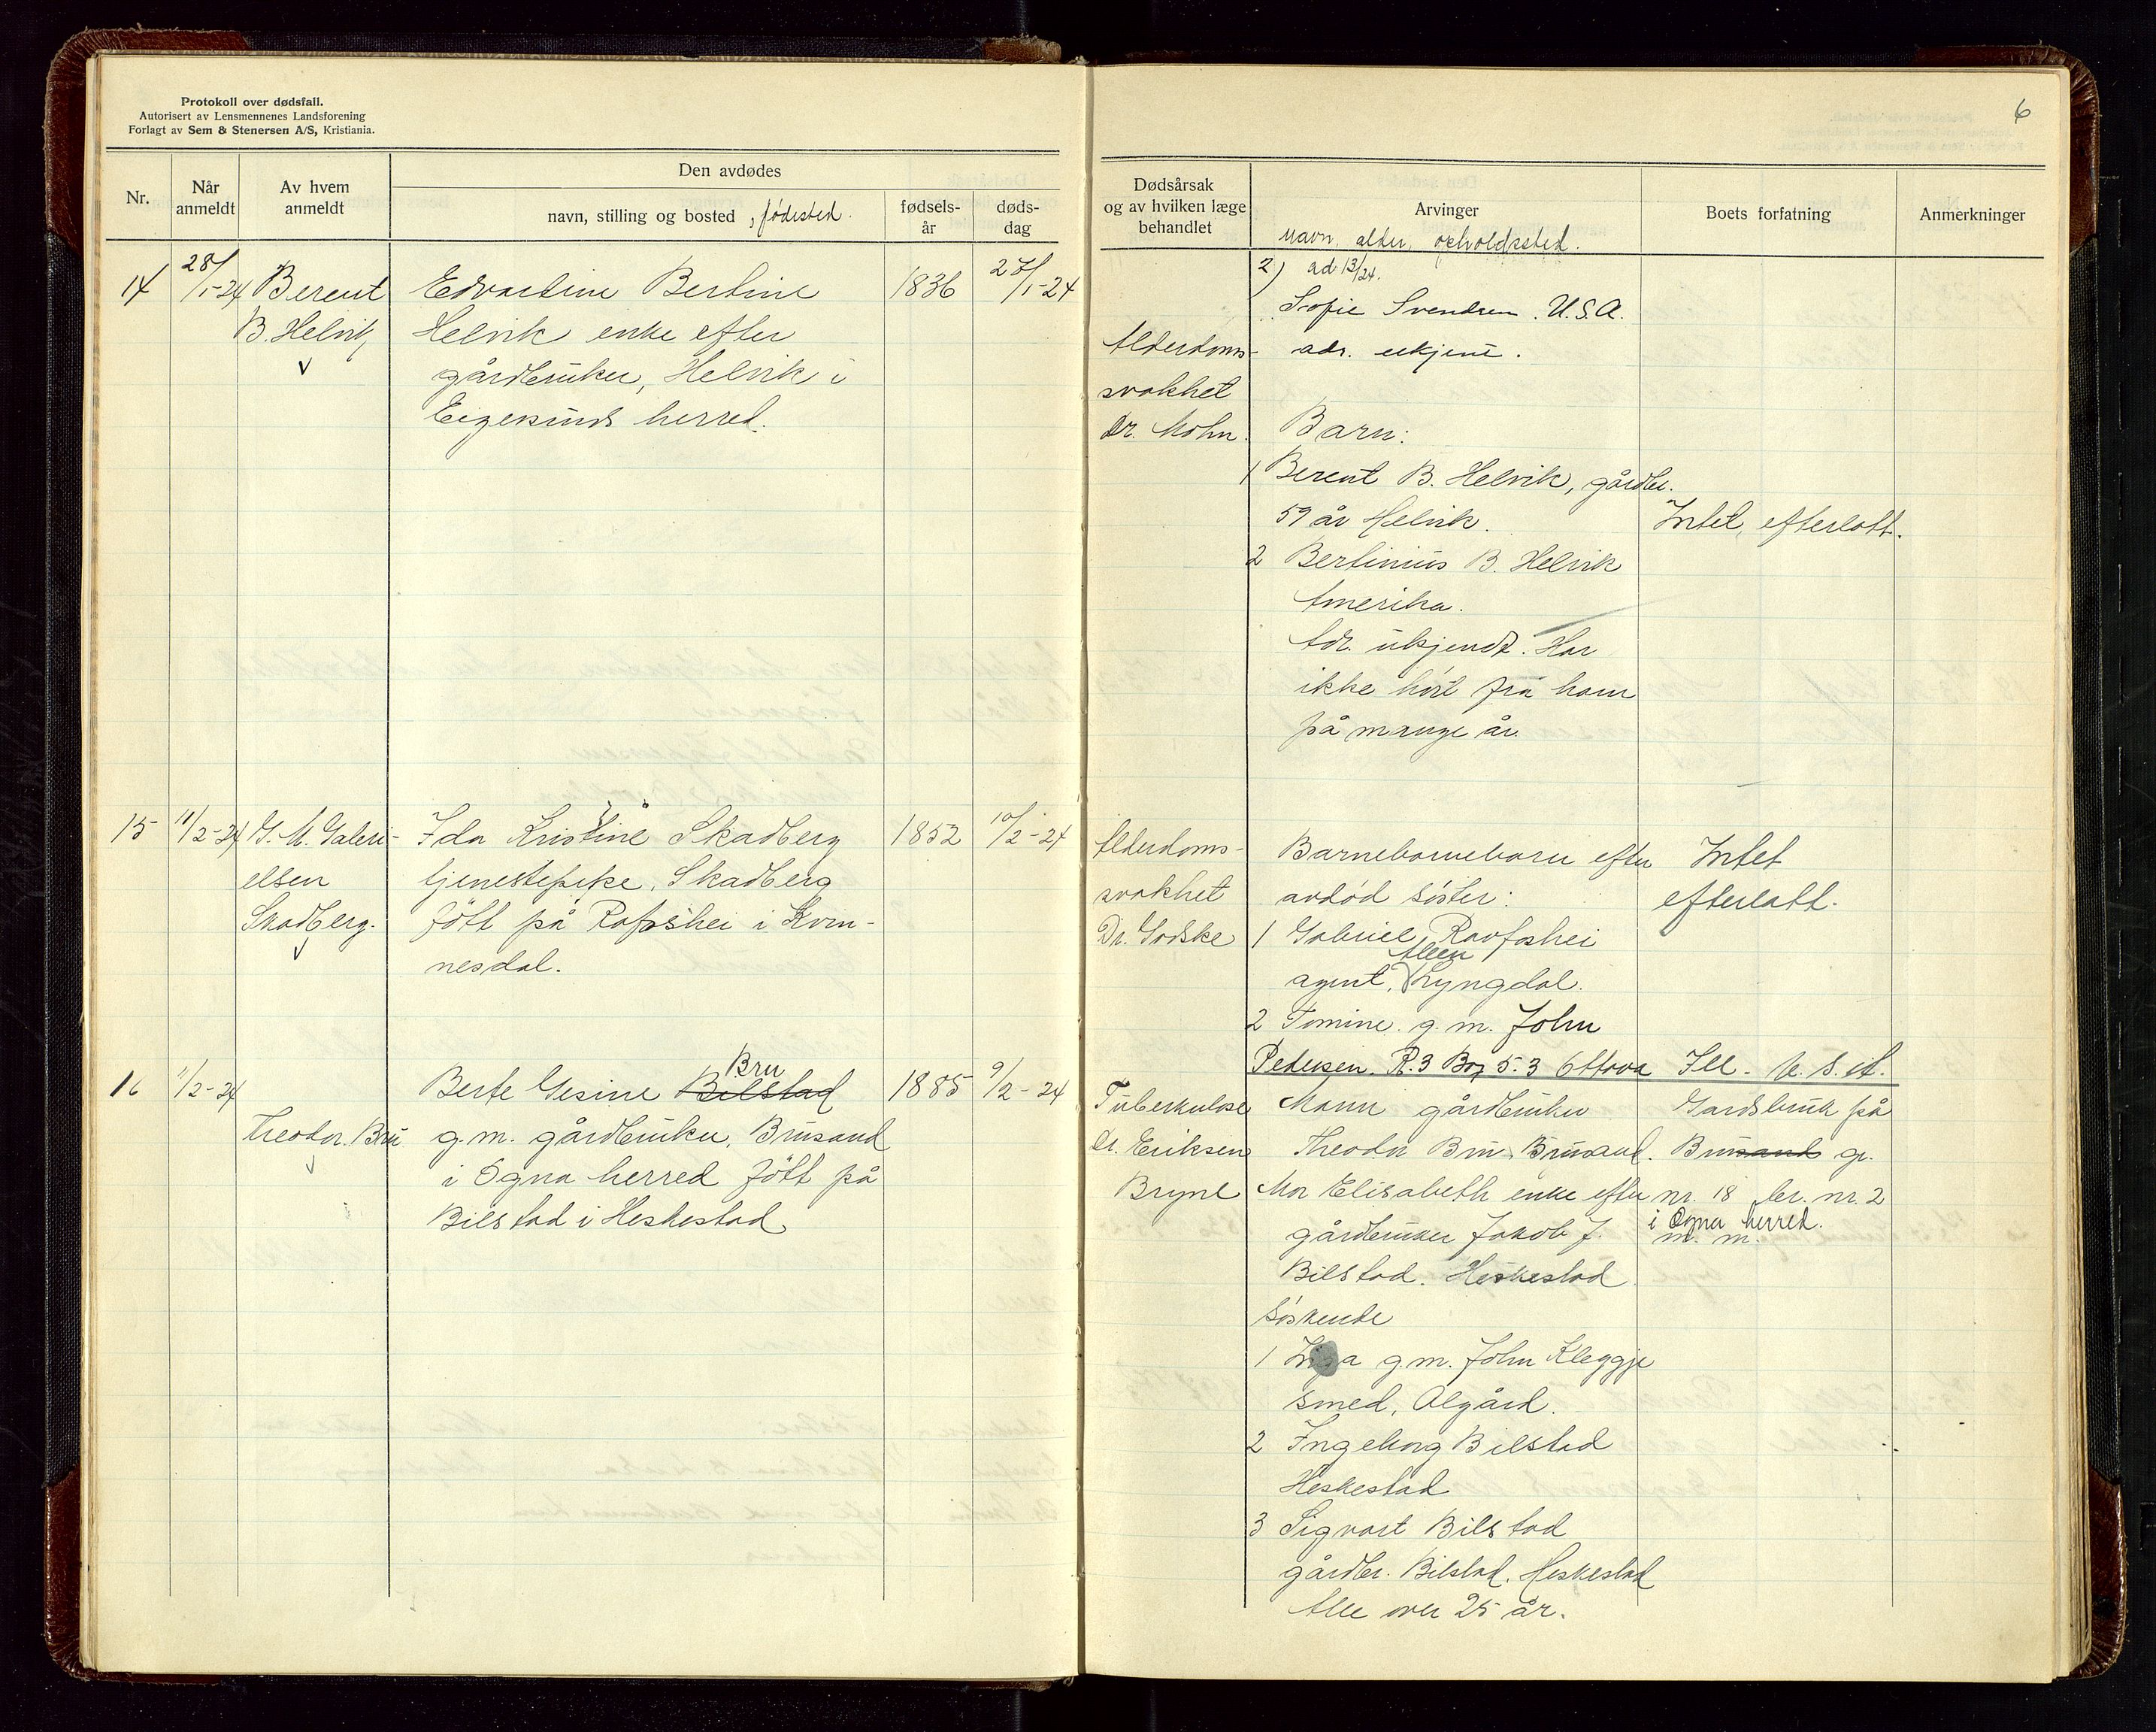 Protokoll over dødsfall.
Autorisert av Lensmennenes Landsforening
Forlagt av Sem & Stenersen A/S, Kristiania.
Nr.
Når anmeldt
Av hvem anmeldt
Den avdødes
navn, stilling og bosted , fødested.
fødsels-år
døds-dag
14
28/1-24
Berent
B. Helvik
Edvardine Bertine
Helvik enke efter
gårdbruker, Helvik i
Eigersunds herred.
1836
27/1-24
15
11/2-24
G. M. Gabri-
elsen
Skadberg.
Ida Kristine Skadberg
tjenestepike, Skadberg
født på Rafoshei i Kvin-
nesdal.
1852
10/2-24
16
11/2-24
Theodor Bru
Bru
Berte Gesine Bilstad
g.m. gårdbruker, Brusand
i Ogna herred født på
Bilstad i Heskestad
1885
9/2-24
6
Dødsårsak
og av hvilken læge
behandlet
Arvinger
navn, alder, opholdssted.
Boets forfatning
Anmerkninger
2) ad 13/24.
Sofie Svendsen. U.S.A.
adr. ukjent.
Alderdoms-
svakhet
Dr. Mohn.
Barn:
1 Berent B. Helvik, gårdbr.
59 år Helvik.
Intet efterlatt.
2 Bertinius B. Helvik
Amerika.
Adr. ukjendt. Har
ikke hørt fra ham
på mange år.
Alderdoms-
svakhet
Dr. Godske
Barnebarnebarn efter
avdød søster:
1 Gabriel Ravfoshei
agent, Lyngdal.
2 Tomine g. m. John
Pedersen. R.3 Box 5.3 Ottova Ill. U.S.A.
Intet
efterlatt.
Tuberkulose
Dr. Eriksen
Bryne
Mann gårdbruker
Theodor Bru, Brusand.
Mor Elisabeth enke efter
gårdbruker Jakob J.
Bilstad. Heskestad
Søskende
1 Inga g.m. John Kleggje
smed, Ålgård.
2 Ingeborg Bilstad
Heskestad
3 Sigvart Bilstad
gårdbr. Bilstad. Heskestad
Alle over 25 år.
Gardsbruk på
Brusand gr.
nr. 18 br. nr. 2
i Ogna herred.
m. m.